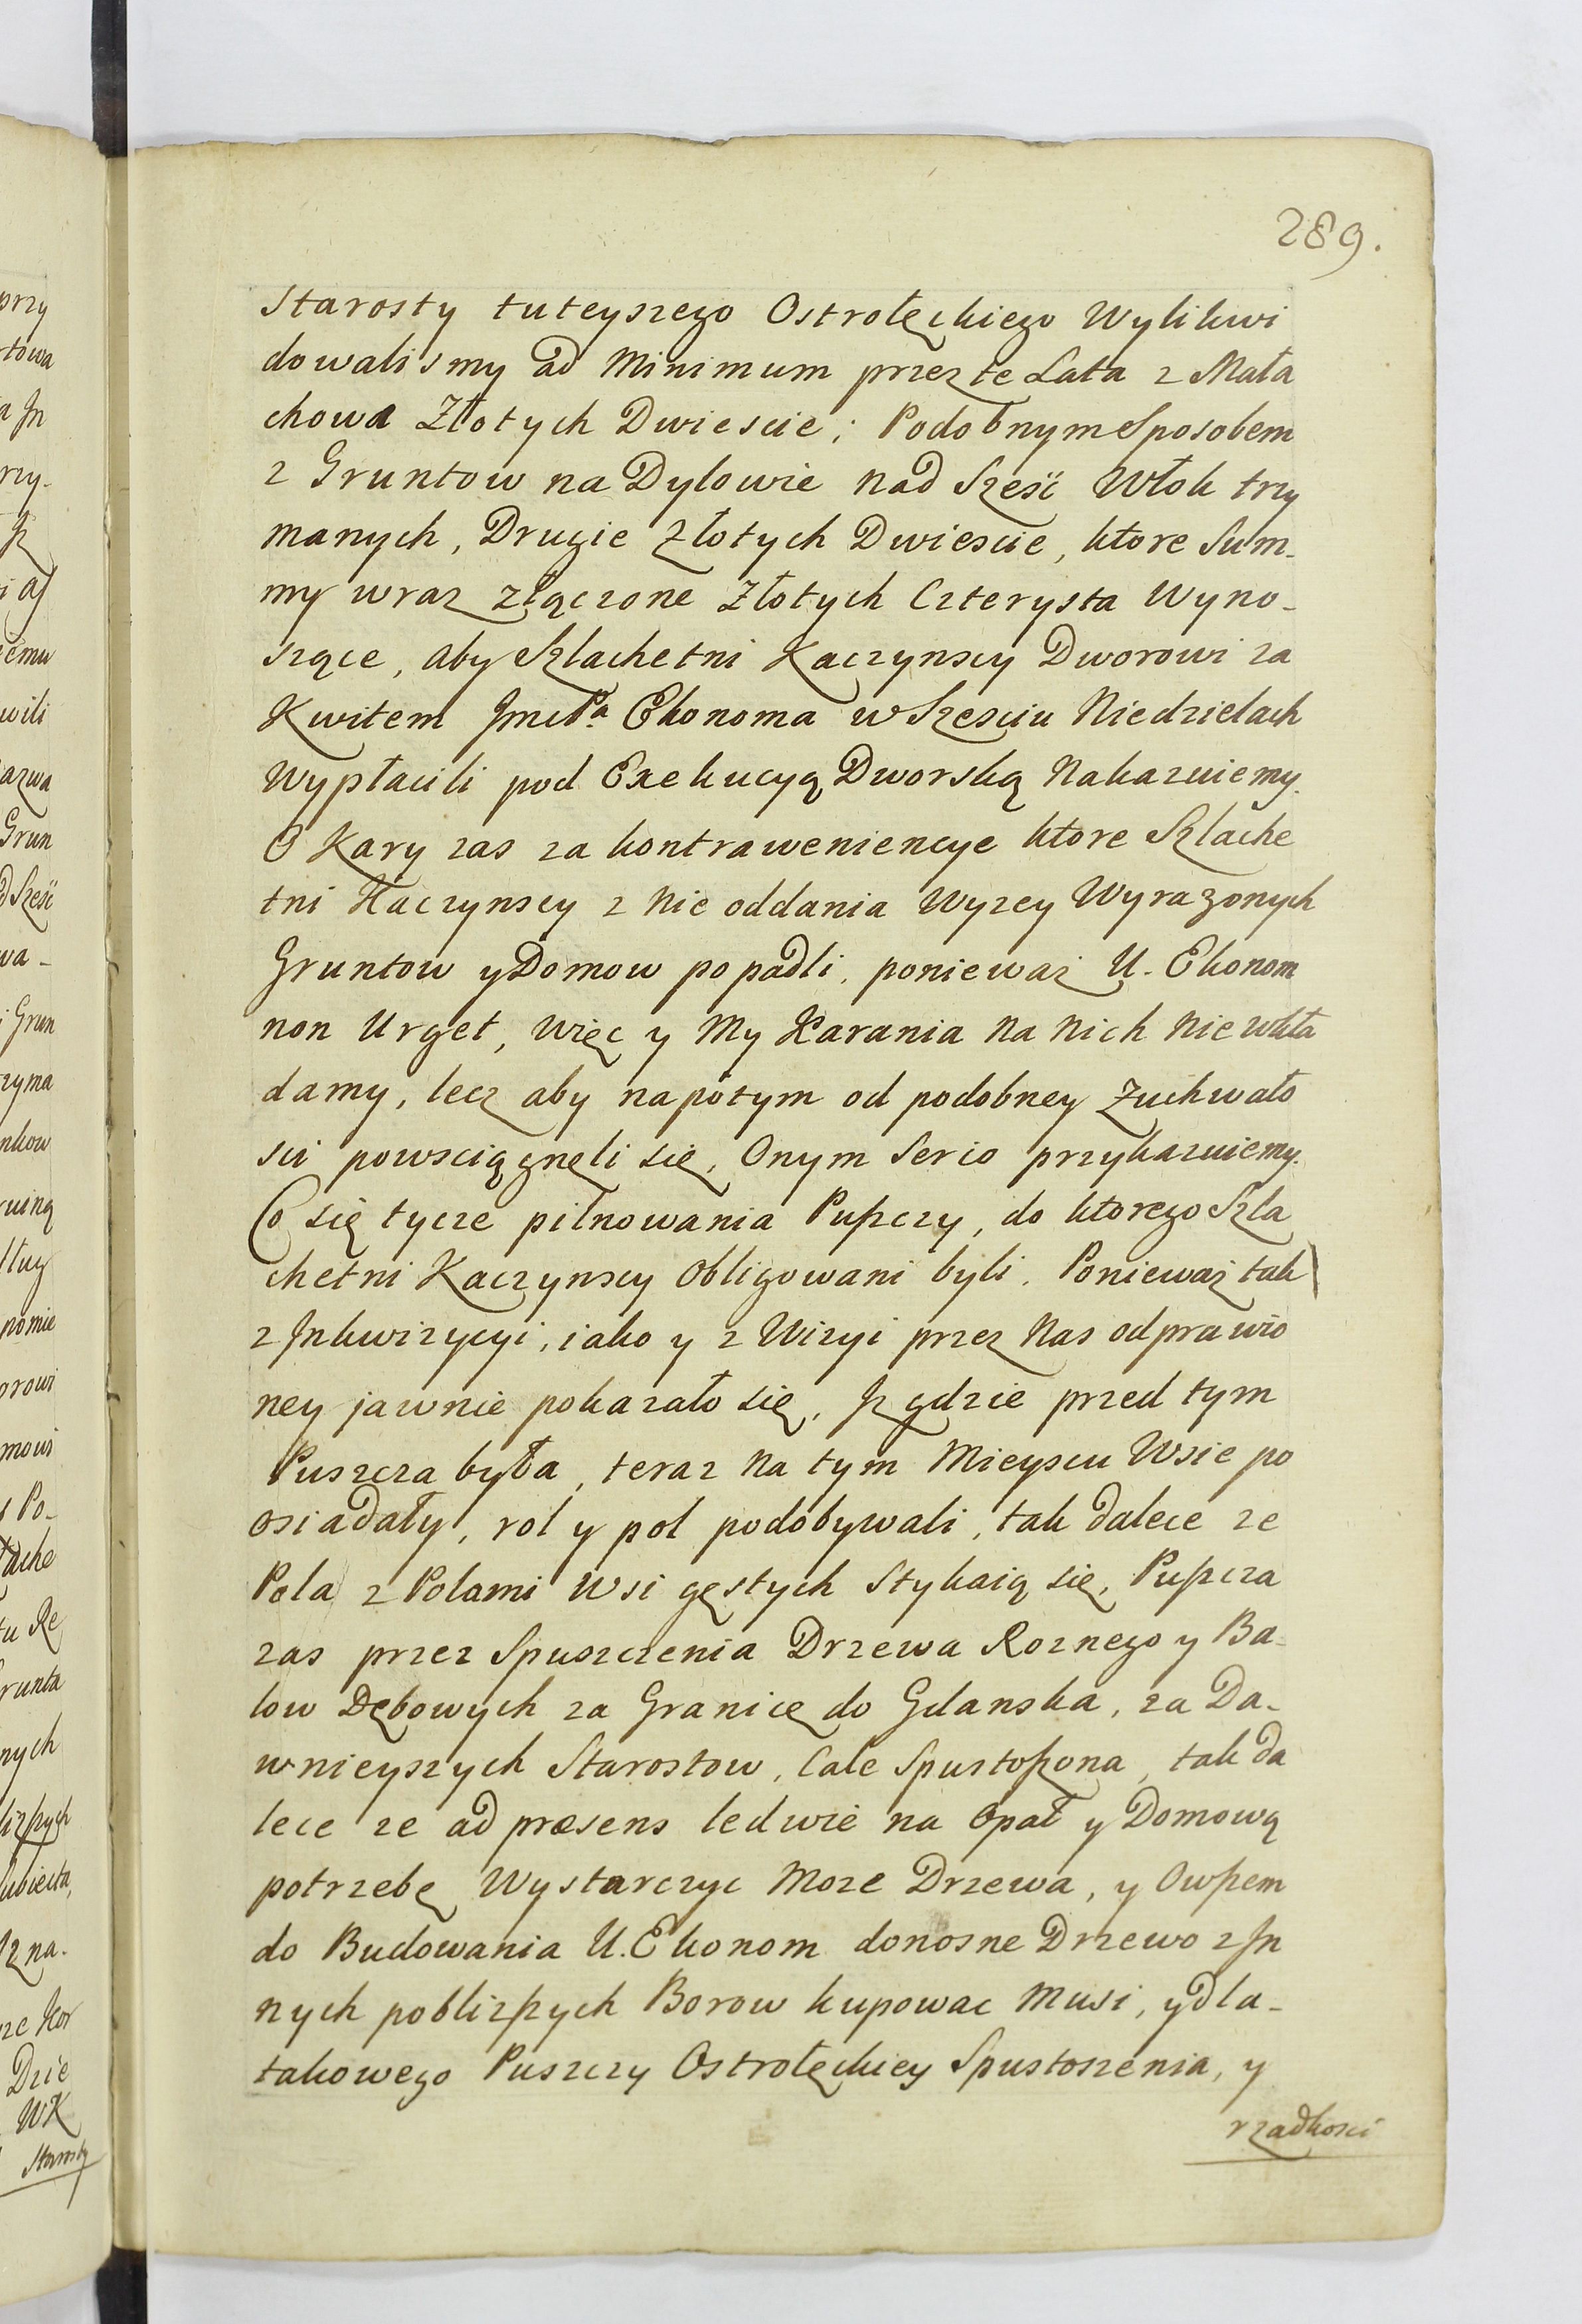 289.
Starosty tuteyszego Ostrołęckiego Wylikwi
dowalismy ad Minimum przez te Lata z Mała
chowa Złotych Dwiescie; Podobnym Sposobem
z Gruntow na Dylowie nad Szesć Włok trzy
manych, Drugie Złotych Dwiescie, ktore Sum-
my wraz złączone Złotych Czterysta Wyno-
szące, aby Szlachetni Kaczynscy Dworowi za
Kwitem Jmci Pa Ekonoma w Szesciu Niedzielach
Wypłacili pod Exekucyą Dworską Nakazuiemy.
O Kary zas za kontrawenience ktore Szlache
tni Kaczynscy z Nie oddania Wyzey Wyrazonych
Gruntow y Domow popadli, poniewaz U. Ekonom
non Urget, Więc y My Karania Na Nich Nie wkła
damy, lecz aby napotym od podobney Zuchwało
sci powsciągneli się, Onym Serio przykazuiemy.
Co się tycze pilnowania Puszczy, do ktorego Szla
chetni Kaczynscy Obligowani byli. Poniewaz tak
z Jnkwizycyi, iako y z Wizyi przez Nas odprawio
ney jawnie pokazało się, Jz gdzie przed tym
Puszcza była, teraz Na tym Mieyscu Wsie po
osiadały, rol y pol podobywali, tak dalece ze
Pola z Polami Wsi gęstych Stykaią się, Puszcza
zas przez Spuszczenia Drzewa Roznego y Ba-
low Dębowych za Granicę do Gdanska, za Da-
wnieyszych Starostow, Cale Spustoszona, tak da
lece ze ad præsens ledwie na Opał y Domową
potrzebę Wystarczyc Moze Drzewa, y Owszem
do Budowania U. Ekonom donosne Drzewo z Jn
nych poblizszych Borow kupowac Musi, y dla-
takowego Puszczy Ostrołęckiey Spustoszenia, y
rzadkosci